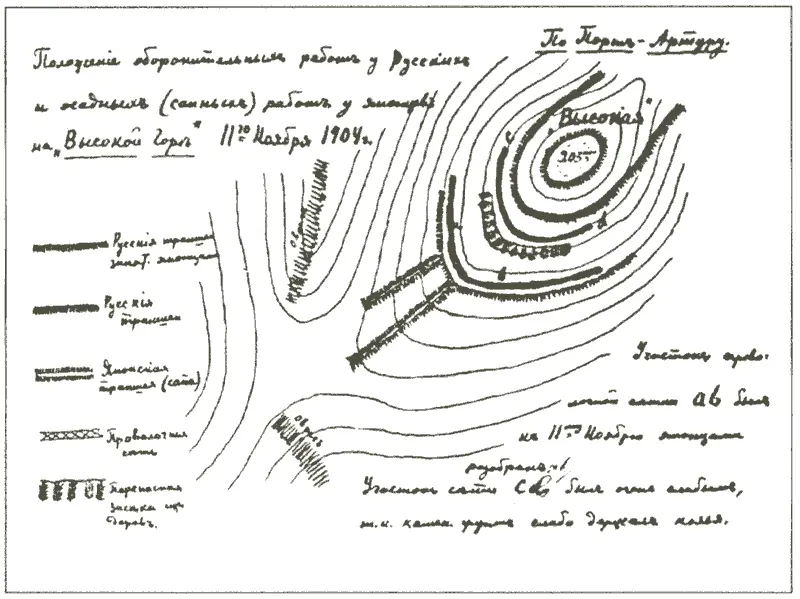 По Портъ-Артуру.
Положеніе оборонительныхъ работъ у Русскихъ
и осадныхъ (сапныхъ) работъ у японцевъ
на „Высокой Горѣ“ 11го Ноября 1904 г.
„Высокая“
203
c
d
a
b
Овр
Оврагъ
Русскія траншеи
занят. японцами
Русскія
траншеи
Японская
траншея (сапа)
Проволочная
сеть
Переносная
засѣка изъ
дерев.
Участокъ прово-
лочной сетки ab былъ
къ 11му Ноябрю японцами
разобранъ
Участокъ сетки cd былъ очень слабымъ,
т.к. камен. грунтъ слабо держалъ колья.